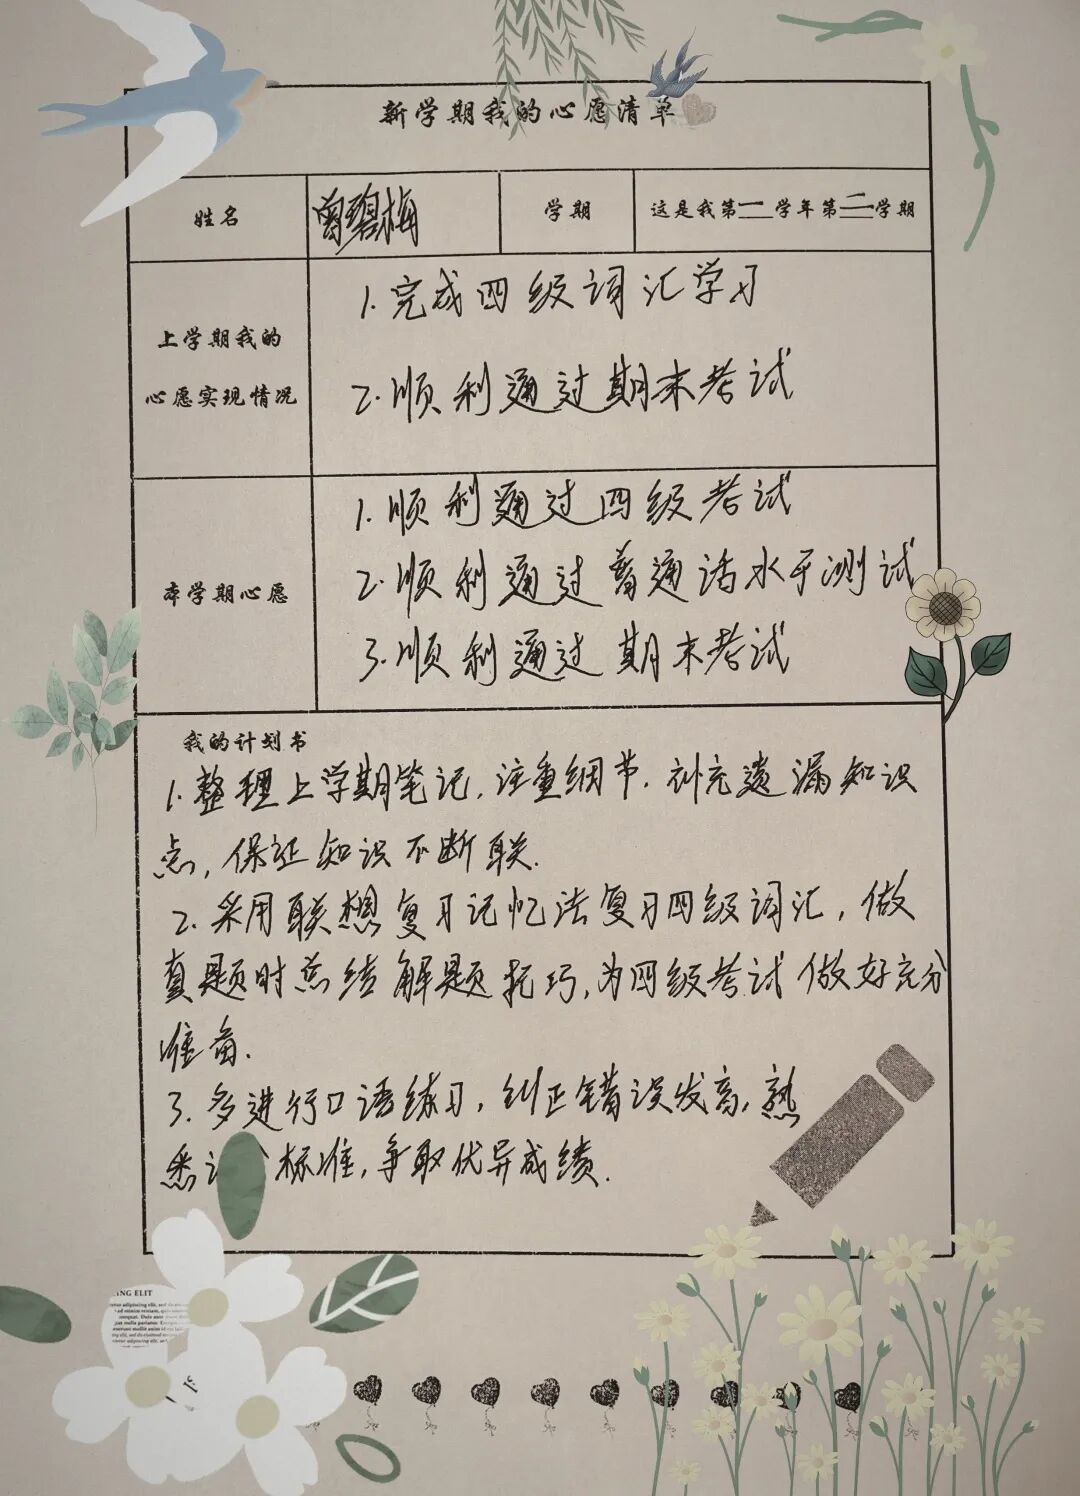 新学期我的心愿清单
姓名 曾碧梅 学期 这是我第一学年第二学期
上学期我的
心愿实现情况
1.完成四级词汇学习
2.顺利通过期末考试
本学期心愿
1.顺利通过四级考试
2.顺利通过普通话水平测试
3.顺利通过期末考试
我的计划书
1.整理上学期笔记,注重细节.补充遗漏知识
点,保证知识不断联.
2.采用联想复习记忆法复习四级词汇,做
真题时总结解题技巧,为四级考试做好充分
准备.
3.多进行口语练习,纠正错误发音,熟
悉 标准,争取优异成绩.
ING ELIT